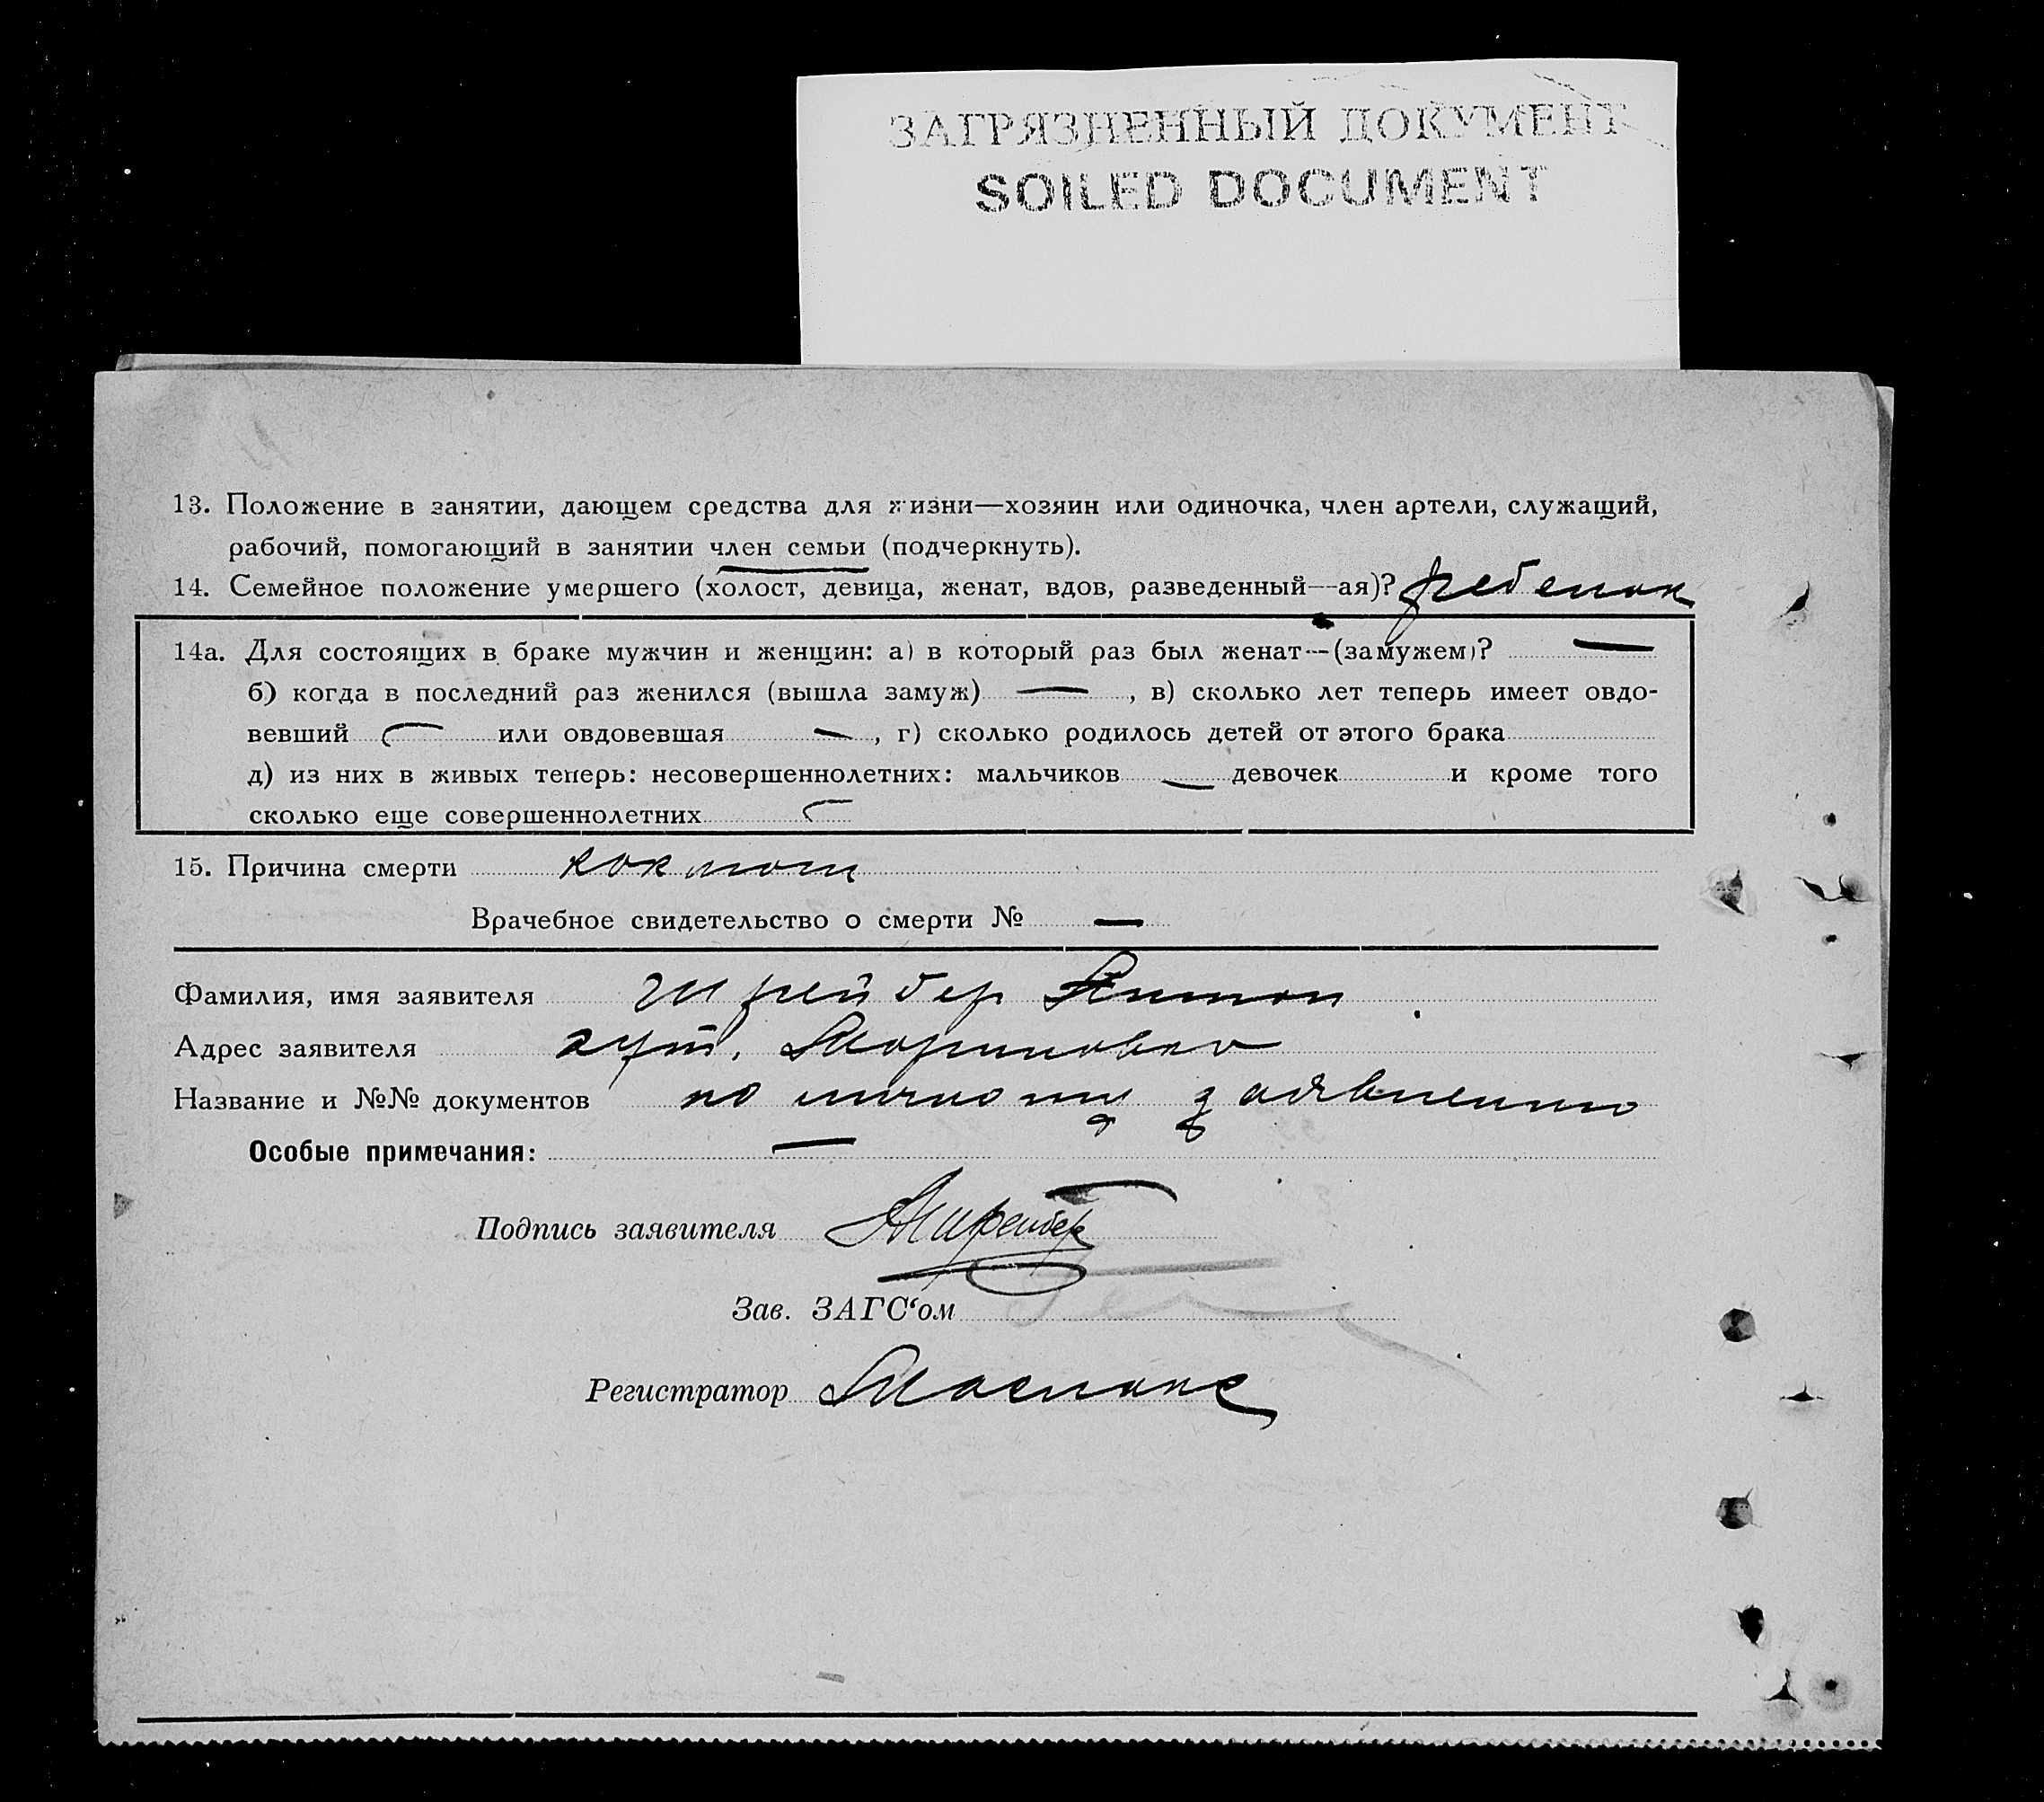 ЗАГРЯЗНЕННЫЙ ДОКУМЕНТ
SOILED DOCUMENT
13. Положение в занятии, дающем средства для жизни—хозяин или одиночка, член артели, служащий,
рабочий, помогающий в занятии член семьи (подчеркнуть).
14. Семейное положение умершего (холост, девица, женат, вдов, разведенный—ая)? ребенок
14а. Для состоящих в браке мужчин и женщин: а) в который раз был женат—(замужем)? —
б) когда в последний раз женился (вышла замуж) — , в) сколько лет теперь имеет овдо-
вевший — или овдовевшая — , г) сколько родилось детей от этого брака
д) из них в живых теперь: несовершеннолетних: мальчиков — девочек и кроме того
сколько еще совершеннолетних —
15. Причина смерти коклюш
Врачебное свидетельство о смерти № —
Фамилия, имя заявителя Шрейбер Антон
Адрес заявителя хут. Мариновка
Название и №№ документов по личному заявлению
Особые примечания: —
Подпись заявителя АШрейбер
Зав. ЗАГС‘ом
Регистратор